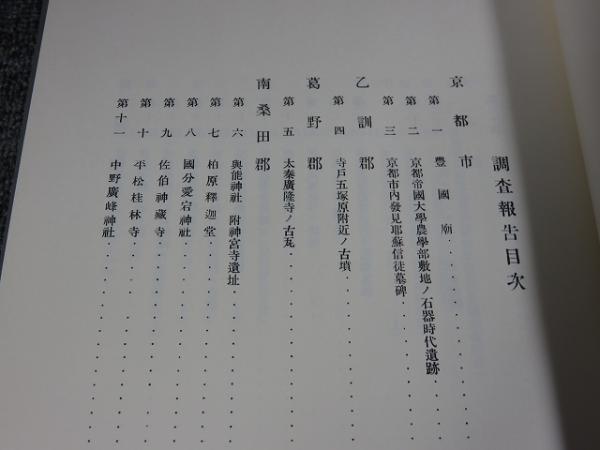 調査報告目次
京都市
第一 豊國廟
第二 京都帝國大學農學部敷地ノ石器時代遺跡
第三 京都市内發見耶蘇信徒墓碑
乙訓郡
第四 寺戸五塚原附近ノ古墳
葛野郡
第五 太秦廣隆寺ノ古瓦
南桑田郡
第六 與能神社 附神宮寺遺址
第七 柏原釋迦堂
第八 國分愛宕神社
第九 佐伯神藏寺
第十 平松桂林寺
第十一 中野廣峰神社